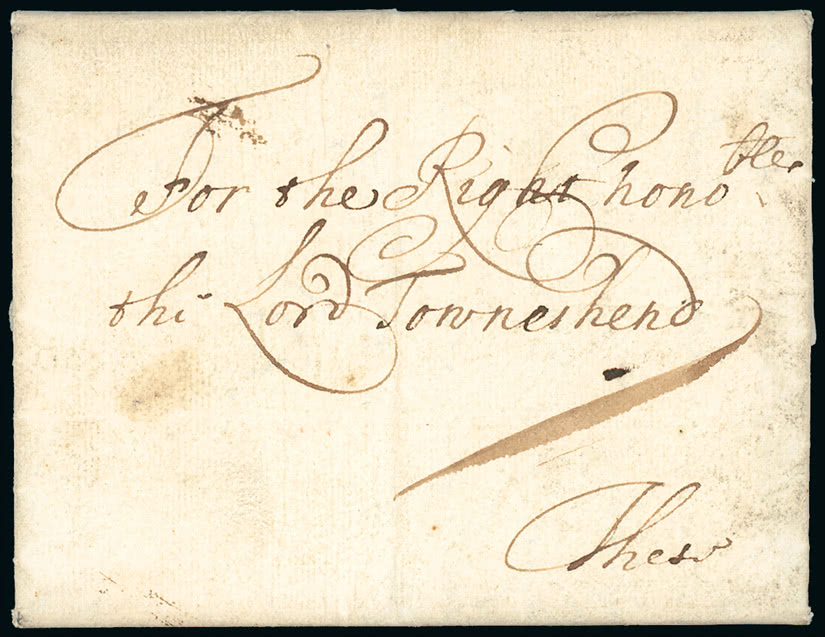 For the Right hono^ble
the Lord Towneshend
These